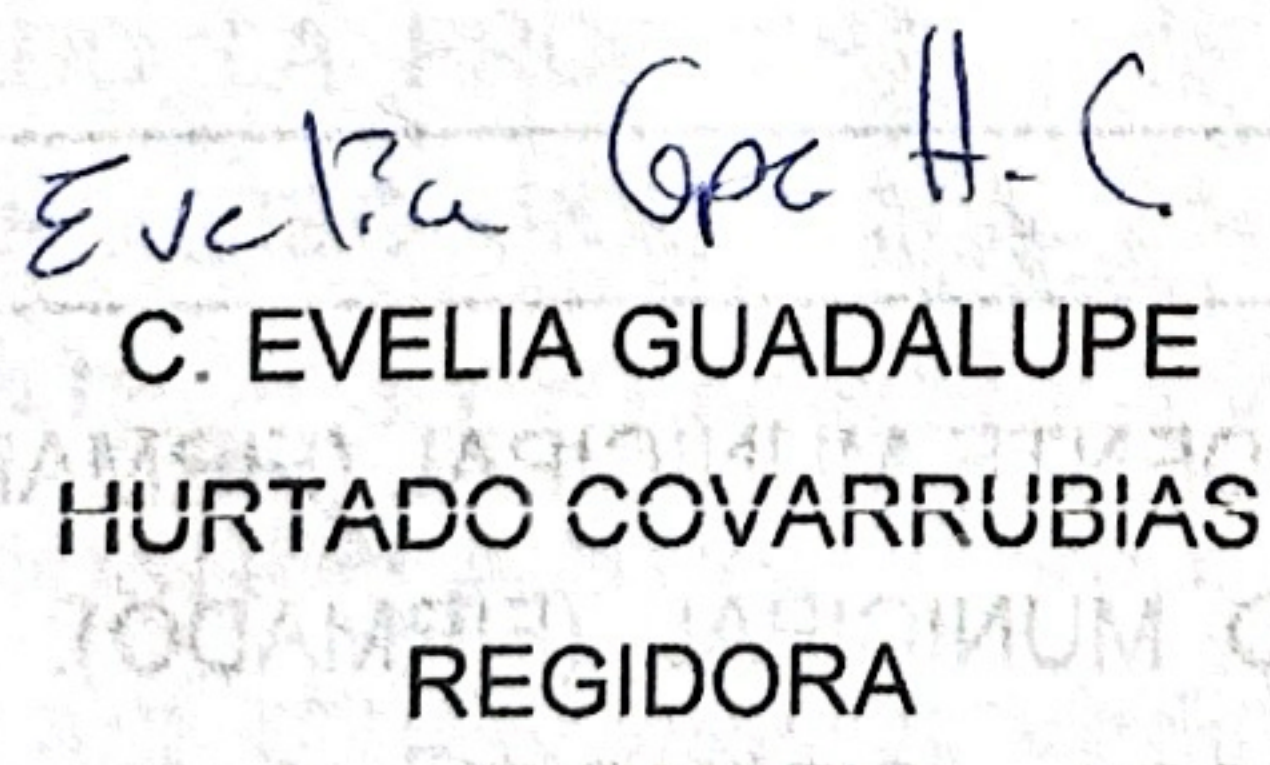 Evelia Gpe H. C.
C. EVELIA GUADALUPE
HURTADO COVARRUBIAS
REGIDORA